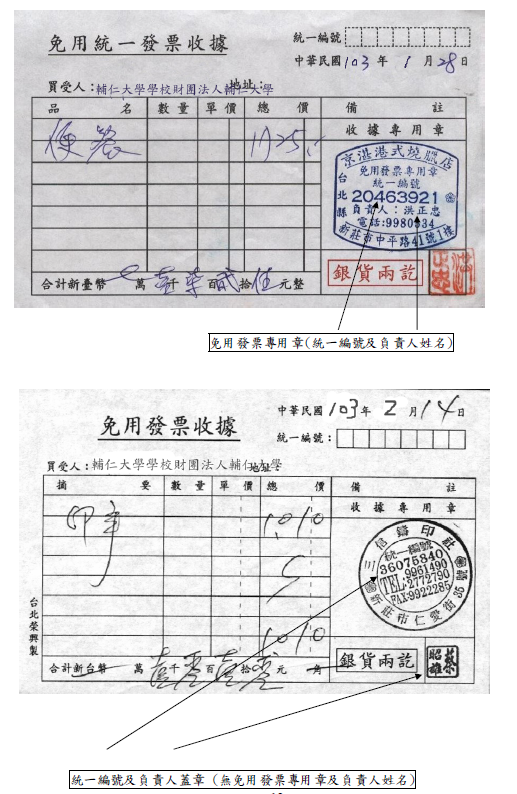 免用統一發票收據
統一編號
中華民國103年1月28日
買受人：輔仁大學學校財團法人輔仁大學
地址：
品名 數量 單價 總價 備註
收據專用章
便餐 1725
京湛港式燒臘店
免用發票專用章
統一編號
台北縣
20463921
負責人：洪正忠
電話:9980934
新莊市中平路41號1樓
合計新臺幣 萬壹千柒百貳拾伍元整
銀貨兩訖
免用發票專用章(統一編號及負責人姓名)
免用發票收據
中華民國103年2月14日
統一編號：
買受人：輔仁大學學校財團法人輔仁大學
地址：
摘要 數量 單價 總價 備註
收據專用章
印章 1010
1010
三信鑄印社
統一編號
36075840
TEL:9961490
2772790
FAX:9922285
新莊市仁愛街35號
台北榮興製
合計新台幣 萬壹千零百壹拾零元 角
銀貨兩訖
蔡昭雄
統一編號及負責人蓋章 (無免用發票專用章及負責人姓名)